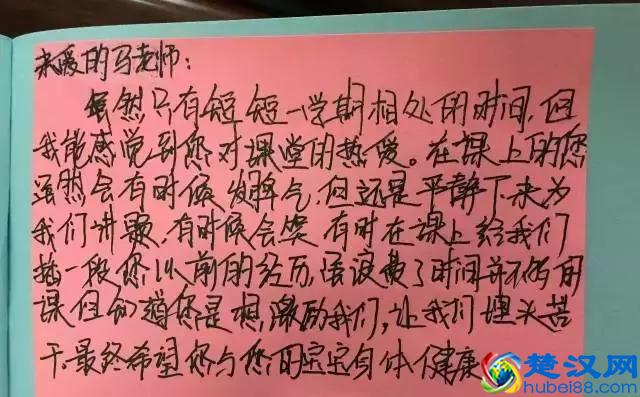 亲爱的马老师：
虽然只有短短一学期相处的时间，但
我能感觉到您对课堂的热爱。在课上的您
虽然会有时候发脾气，但还是平静下来为
我们讲题，有时候会笑 有时在课上给我们
插一段您以前的经历，虽浪费了时间并不
课但知道您是想激励我们，让我们埋头苦
干。最终希望您与您的宝宝身体健康
楚汉网
hubei88.com